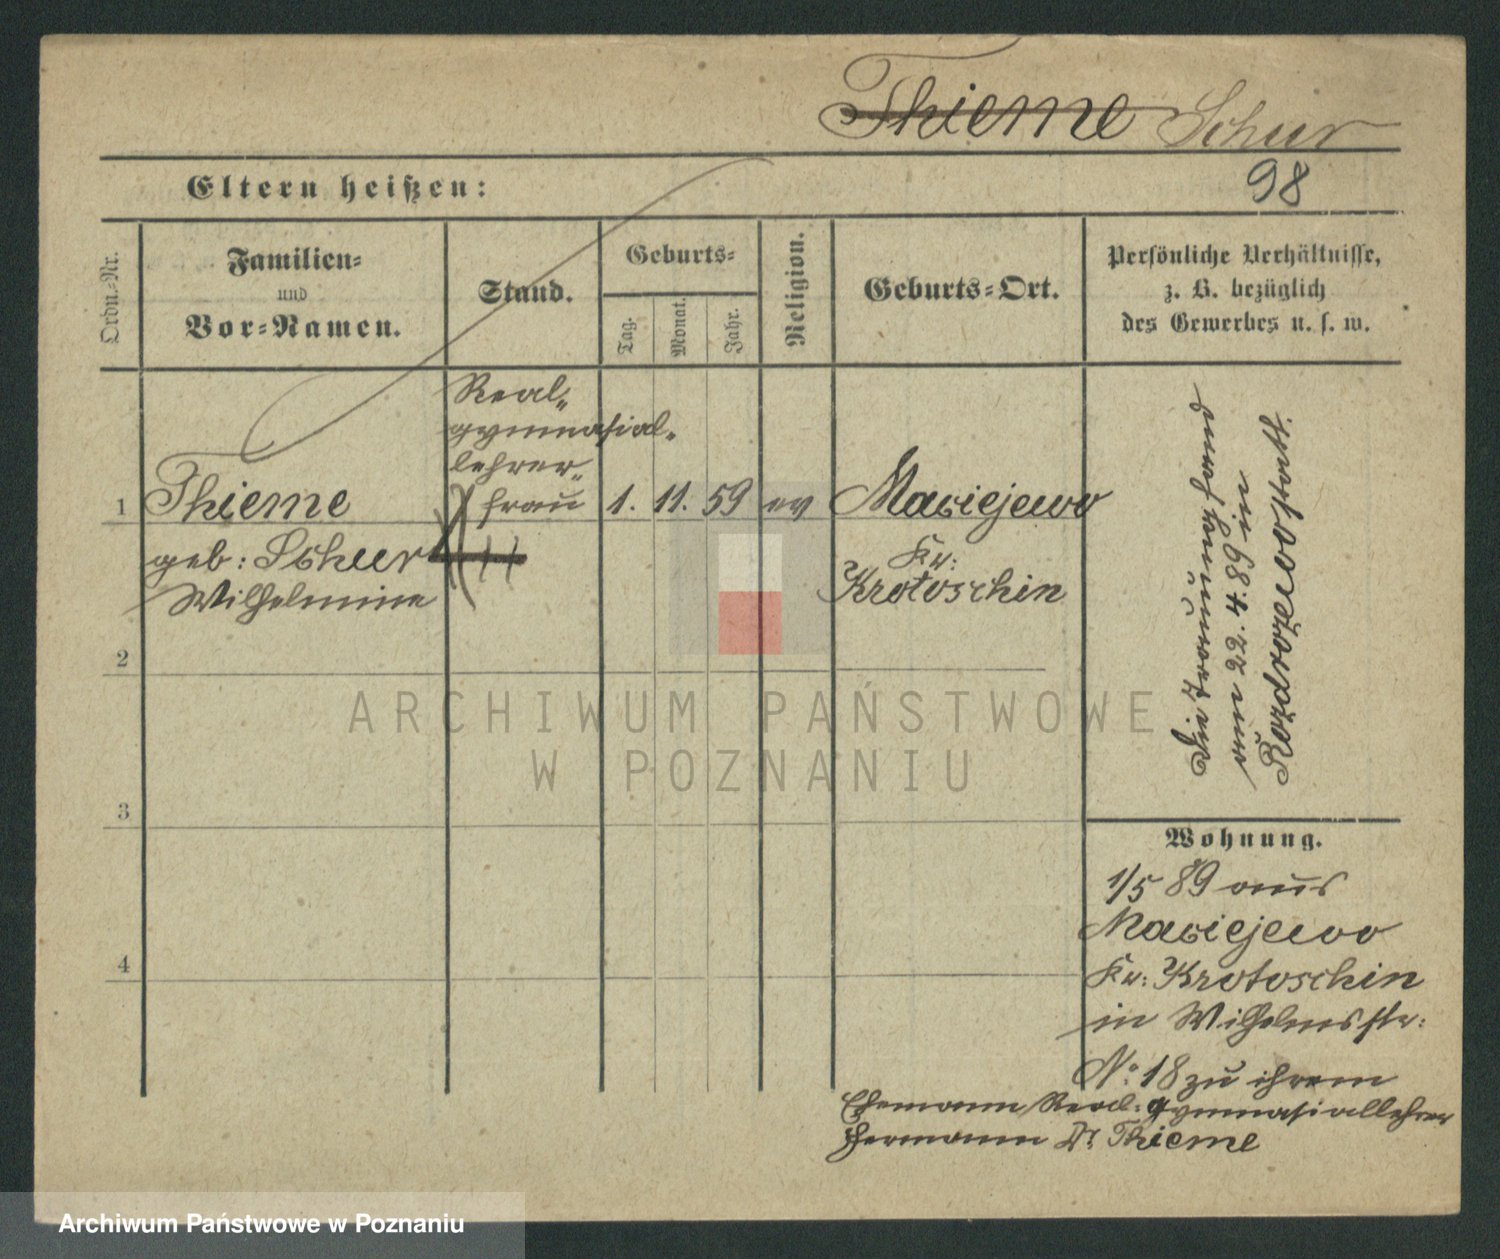 Thieme Schur
Eltern heißen:
98
Ordn.-Nr.
Familien-
und
Vor-Namen.
Stand.
Geburts-
Tag.
Monat.
Jahr.
Religion.
Geburts-Ort.
Persönliche Verhältnisse,
z. B. bezüglich
des Gewerbes u. s. w.
Real-
gymnasial-
lehrer-
1 Thieme frau 1. 11. 59 ev Maciejewo
geb: Schur Kr:
Wilhelmine Krotoschin
Die Trauung fand
am 22.4.89 in
Rozdrozewo statt.
2
3
4
Wohnung.
1/5 89 aus
Maciejewo
Kr: Krotoschin
in Wilhelmsstr:
No: 18 zu ihrem
Ehemann Real-gymnasiallehrer
Hermann Dr. Thieme
ARCHIWUM PAŃSTWOWE
W POZNANIU
Archiwum Państwowe w Poznaniu